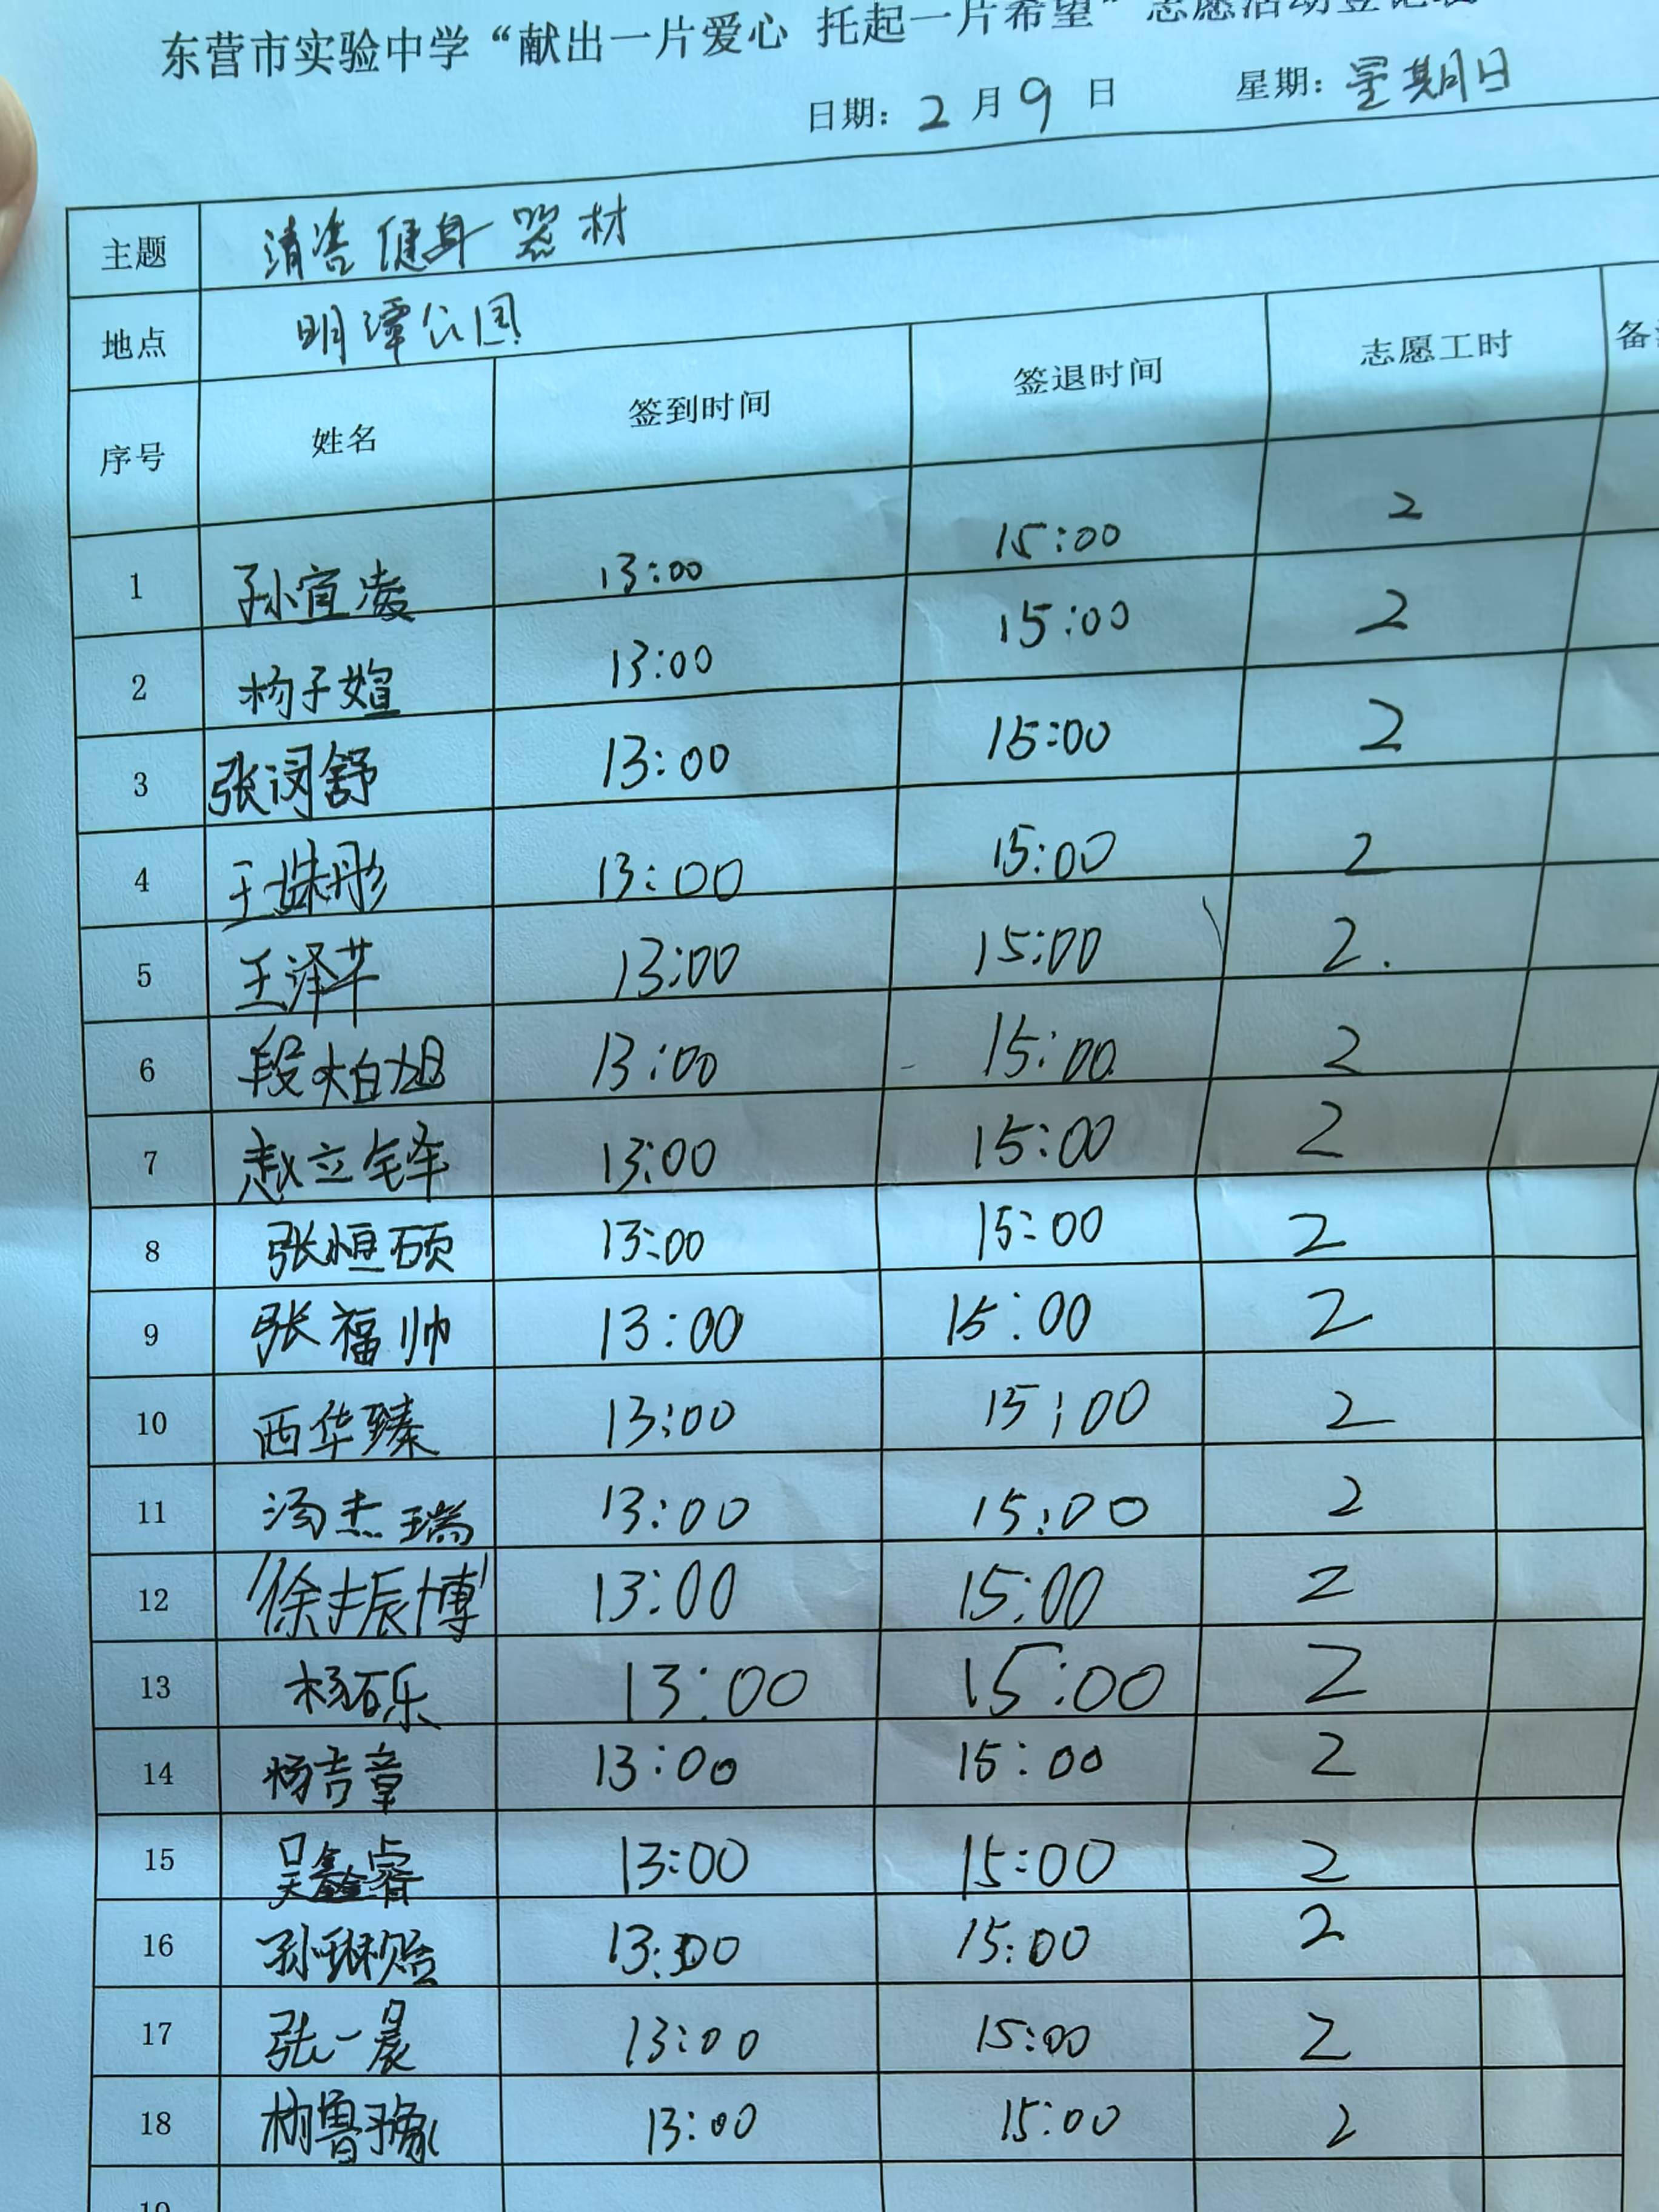 东营市实验中学“献出一片爱心 托起一片希望”志愿活动登记表
日期：2月9日 星期：星期日
主题 清洁健身器材
地点 明潭公园
序号 姓名 签到时间 签退时间 志愿工时 备
1 孙宜凌 13:00 15:00 2
2 杨子媗 13:00 15:00 2
3 张闵舒 13:00 15:00 2
4 王姝彤 13:00 15:00 2
5 王泽芊 13:00 15:00 2.
6 段 13:00 15:00 2
7 赵立铎 13:00 15:00 2
8 张恒硕 13:00 15:00 2
9 张福帅 13:00 15:00 2
10 西华臻 13:00 15:00 2
11 汤杰瑞 13:00 15:00 2
12 徐振博 13:00 15:00 2
13 杨砾乐 13:00 15:00 2
14 杨吉章 13:00 15:00 2
15 吴鑫睿 13:00 15:00 2
16 孙琳贻 13:00 15:00 2
17 张一晨 13:00 15:00 2
18 杨鲁豫 13:00 15:00 2
19